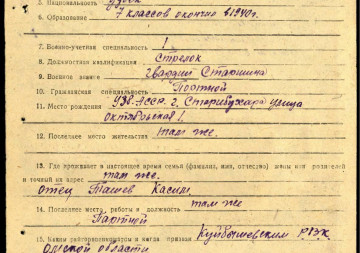 5. Национальность Узбек
6. Образование 7 классов окончил в 1940г.
7. Военно-учетная специальность 1
8. Должностная квалификация Стрелок
9. Военное звание Гвардии Старшина
10. Гражданская специальность Портной
11. Место рождения УЗБ. АССР. г. Старибухара улица
Октябрьская 1.
12. Последнее место жительства там же.
13. Где проживает в настоящее время семья (фамилия, имя, отчество) жены или родителей
и точный их адрес там же.
отец Ташев Касим.
14. Последнее место, работы и должность там же
Партной
15. Каким райгорвоенкоматом и когда призван Куйбышевским РВК
Омской области